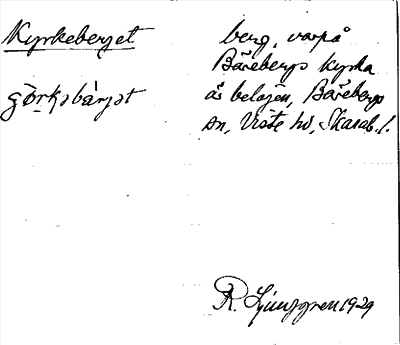 Kyrkeberget
berg, varpå
Bärebergs kyrka
är belägen, Bärebergs
sn, Viste hd, Skarab. l.
R. Ljunggren 1929